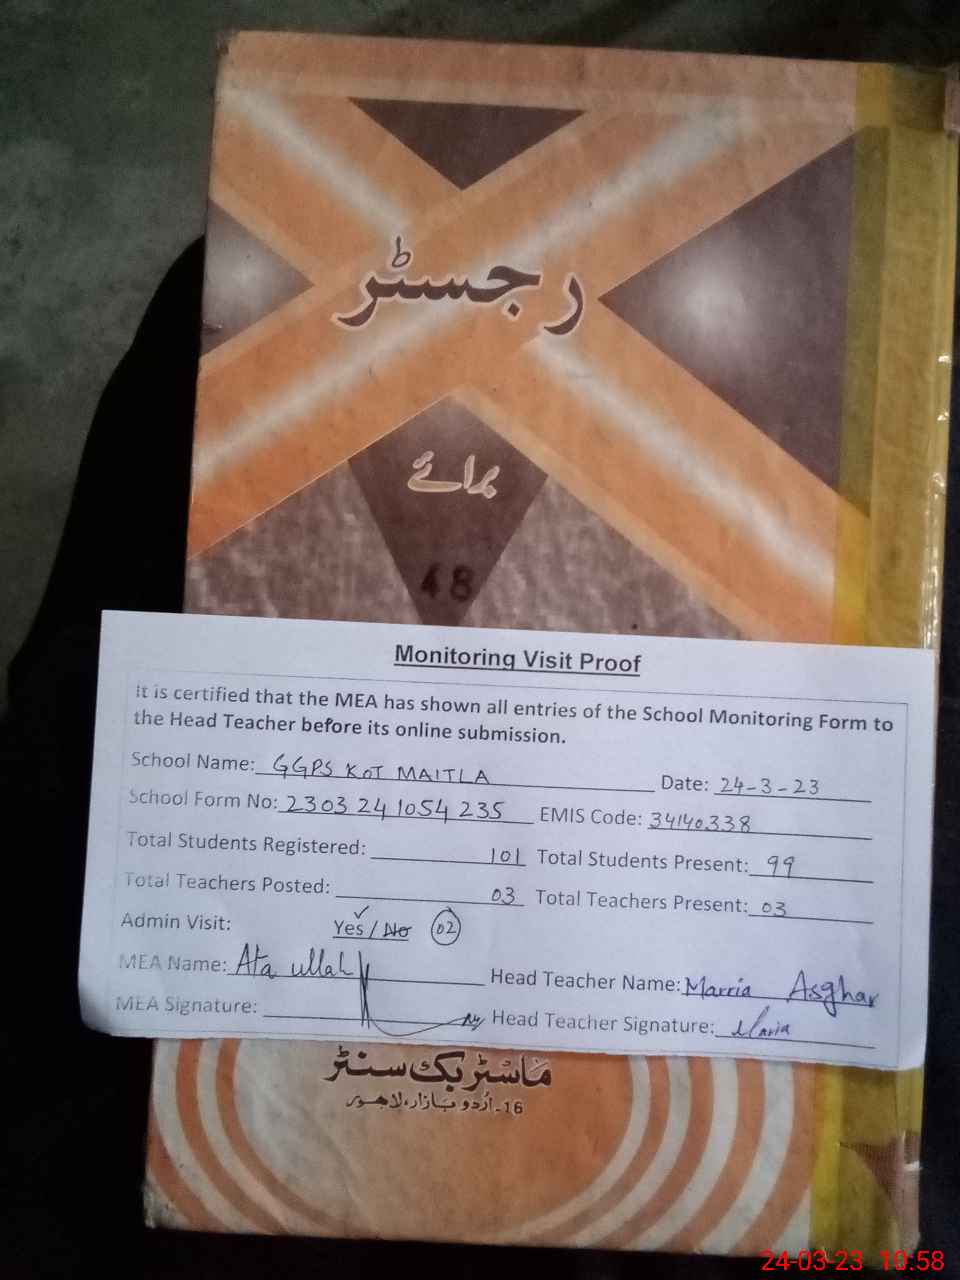 رجسٹر
برائے
48
Monitoring Visit Proof
It is certified that the MEA has shown all entries of the School Monitoring Form to
the Head Teacher before its online submission.
School Name: GGPS KOT MAITLA Date: 24-3-23
School Form No: 2303 24 1054 235 EMIS Code: 34140338
Total Students Registered: 101 Total Students Present: 99
Total Teachers Posted: 03 Total Teachers Present: 03
Admin Visit: Yes / No 02
MEA Name: Ata ullah Head Teacher Name: Marria Asghar
MEA Signature: Head Teacher Signature: Maria
ماسٹر بک سنٹر
16-اُردو بازار، لاہور
24-03-23 10:58